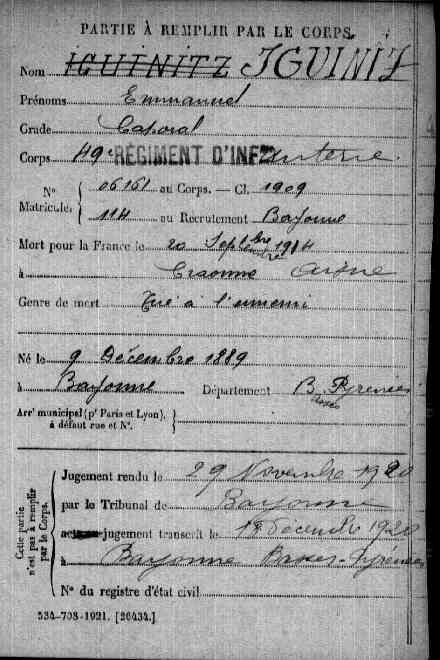 PARTIE À REMPLIR PAR LE CORPS.
Nom IGUINITZ IGUINIZ
Prénoms Emmanuel
Grade Caporal
Corps 49e RÉGIMENT D'INFanterie.
Nº Matricule. { 06161 au Corps. — Cl. 1909
114 au Recrutement Bayonne
Mort pour la France le 20 Septembre 1914
à Craonne Aisne
Genre de mort Tué à l'ennemi
Né le 9 Décembre 1889
à Bayonne Département B. Pyrénées
Arrt municipal (pr Paris et Lyon), à défaut rue et Nº. }
Cette partie n'est pas à remplir par le Corps.
Jugement rendu le 29 Novembre 1920
par le Tribunal de Bayonne
acte ou jugement transcrit le 18 décembre 1920
à Bayonne Basses-Pyrénées
Nº du registre d'état civil
534-708-1921. [26434.]